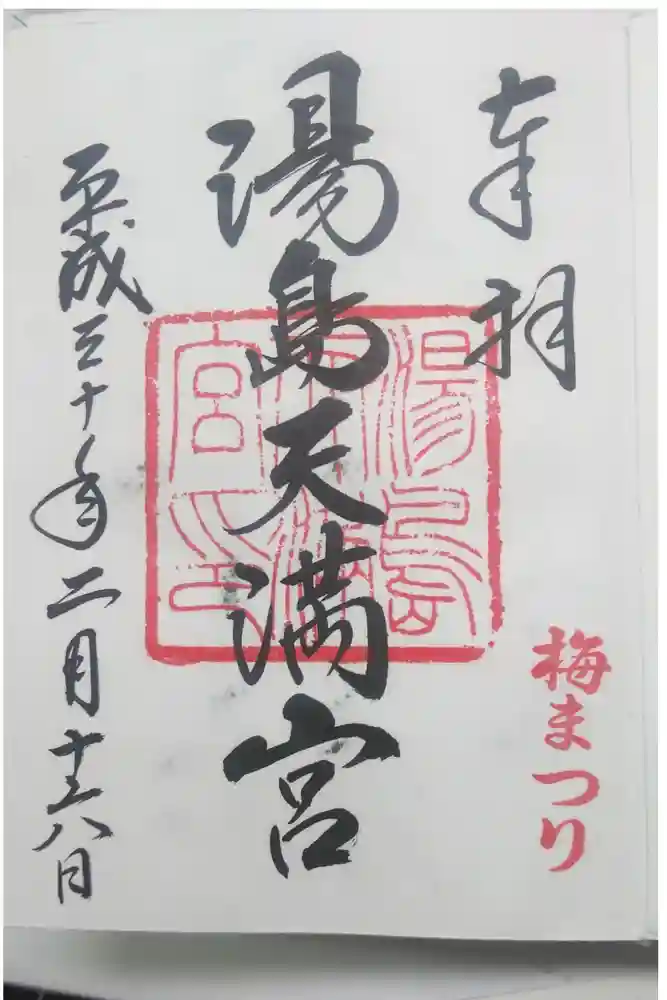 奉拝
梅まつり
湯島天満宮
平成三十年二月十六日
湯島
天満
宮印